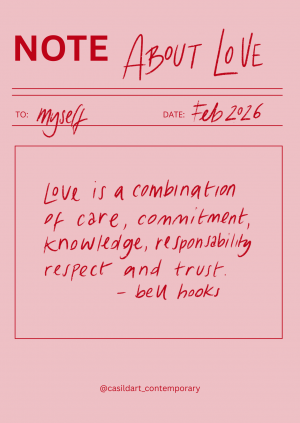 NOTE About Love
TO: myself DATE: Feb 2026
Love is a combination
of care, commitment,
knowledge, responsability
respect and trust.
- bell hooks
@casildart_contemporary